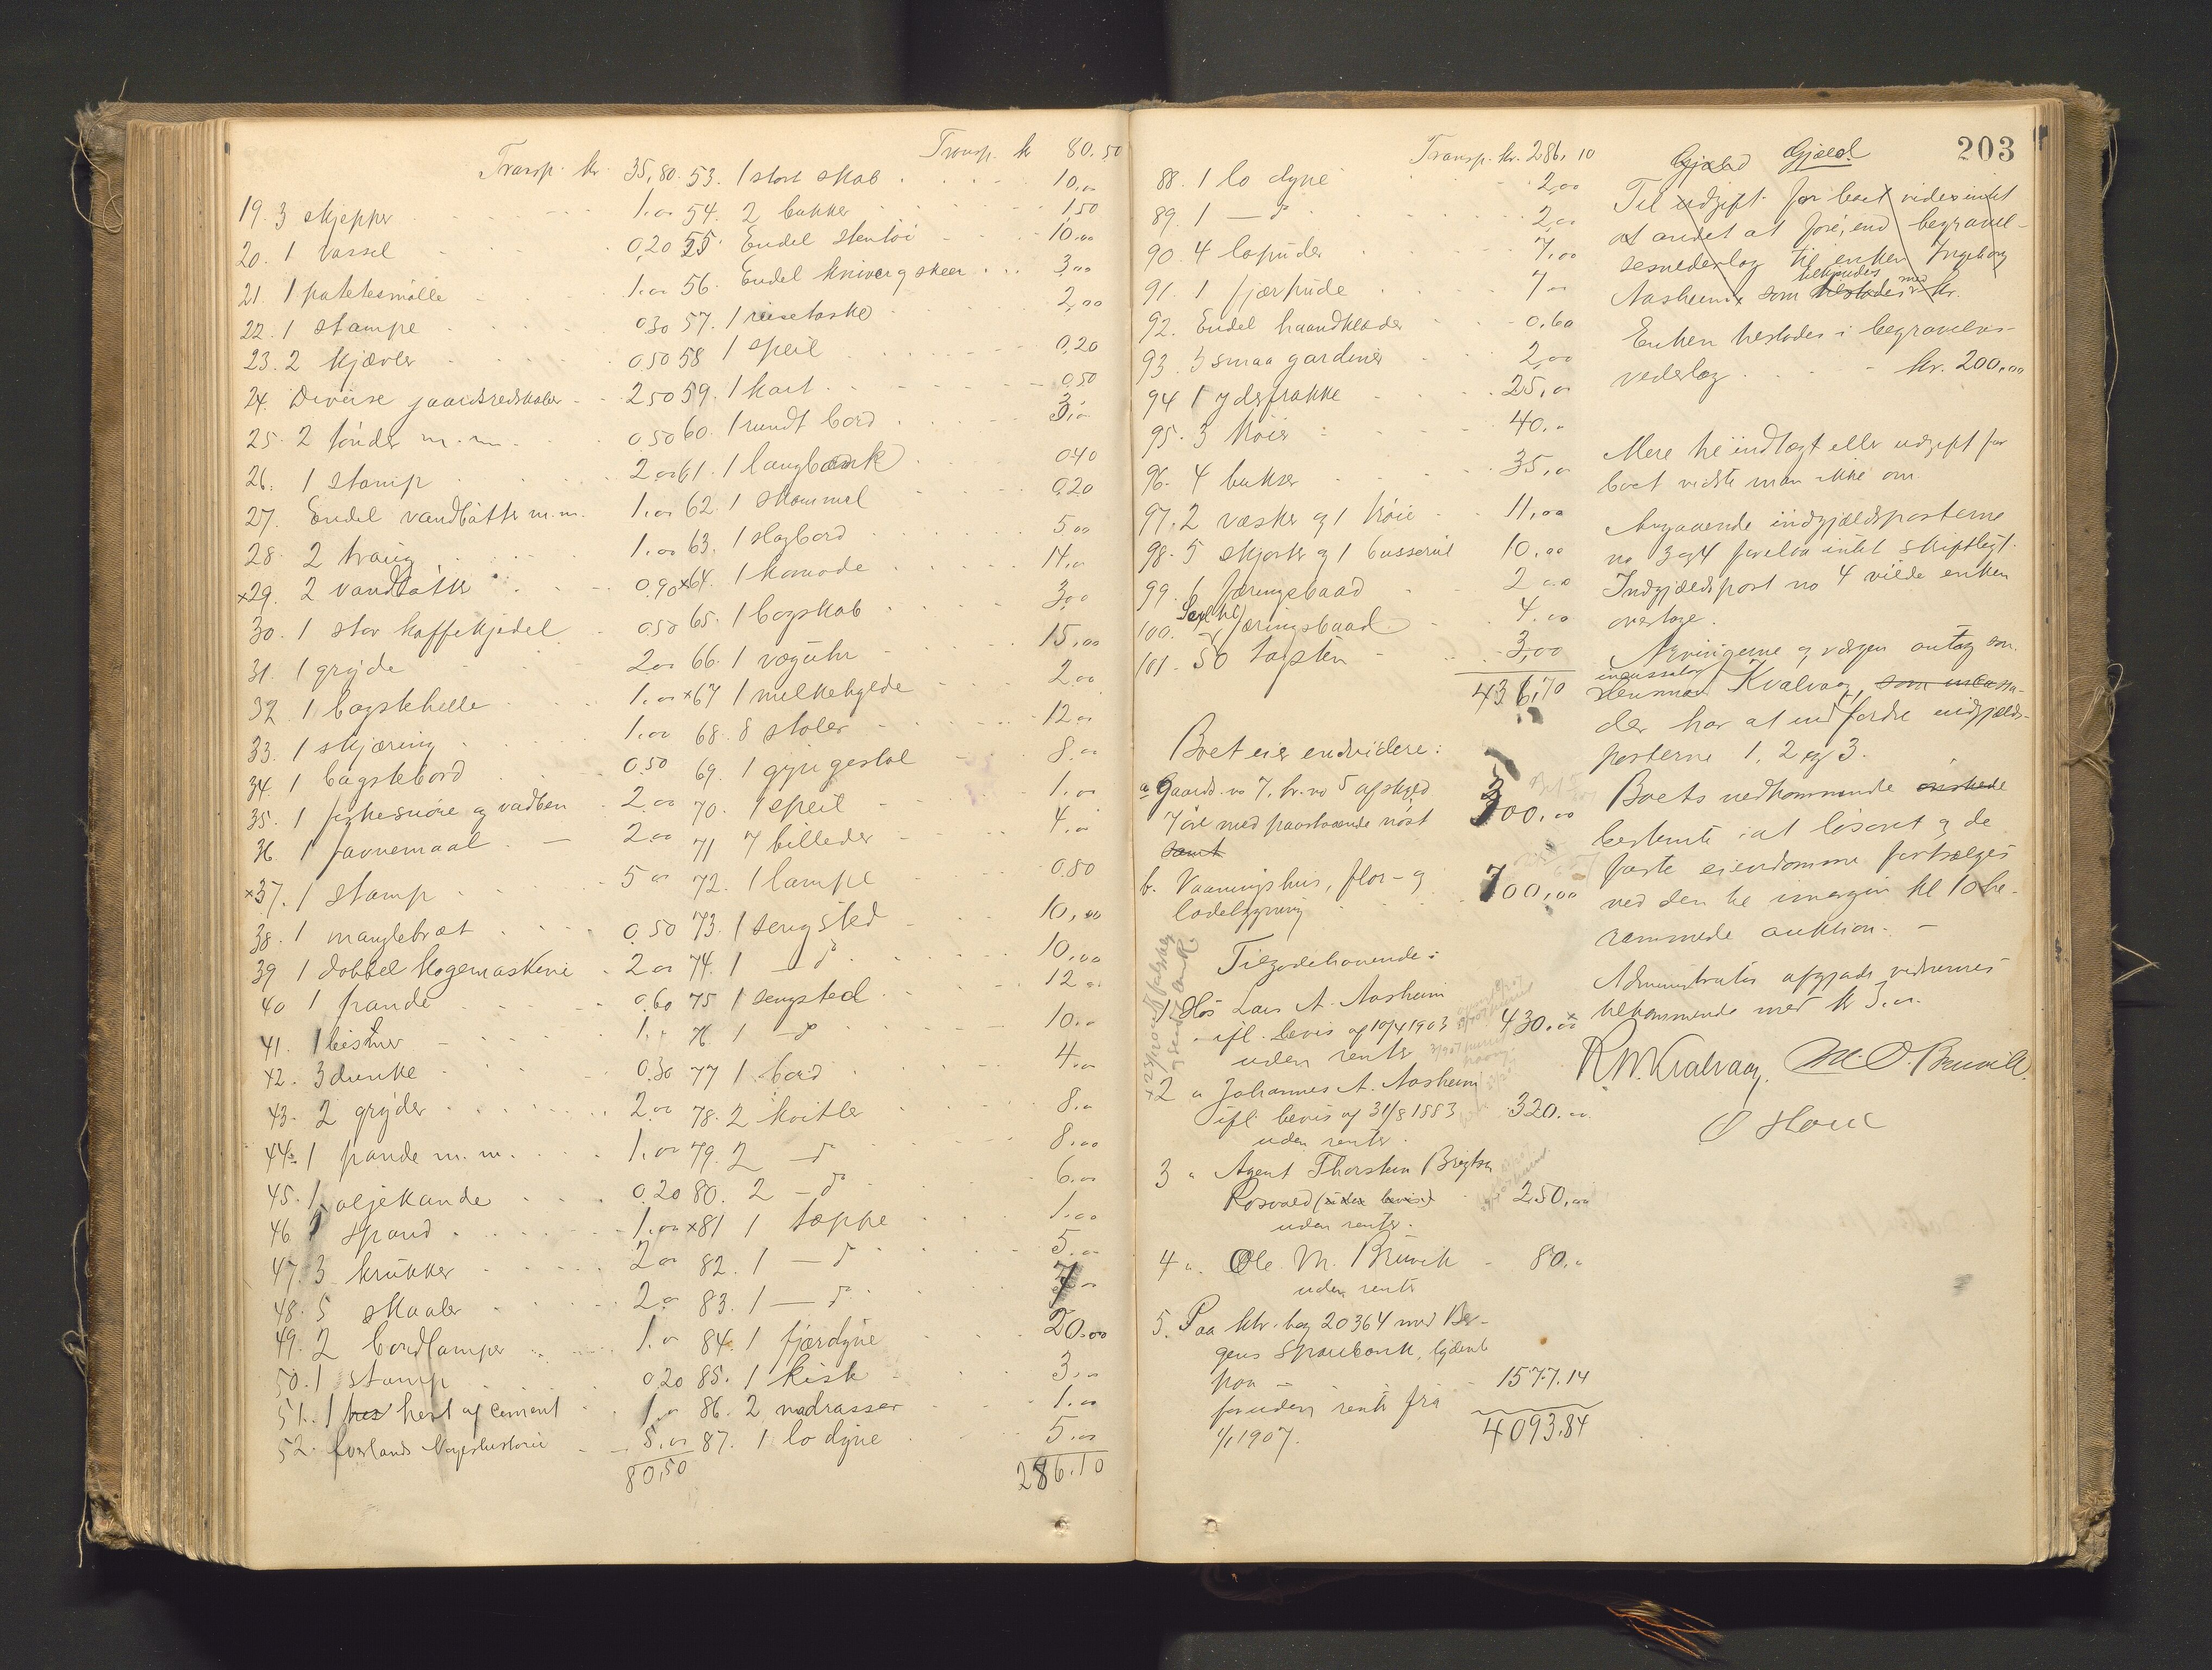 Transp. kr. 35,80
19. 3 skjepper 1.00
20. 1 vassel 0,20
21. 1 potetesmölle 1.00
22. 1 stampe 0.30
23. 2 kjævler 0.50
24. Diverse gaardsredskaber 2.50
25. 2 tønder m.m. 0.50
26. 1 stamp 2.00
27. Endel vandbøtter m.m. 1.00
28. 2 traug 1.00
×29. 2 vandbøtter 0.90
30. 1 stor kaffekjedel 0.50
31. 1 gryde 2.00
32. 1 bagstehelle 1.00
33. 1 skjæring 1.00
34. 1 bagstebord 0.50
35. 1 fiskesnøre og vadben 2.00
36. 1 favnemaal 2.00
×37. 1 stamp 5.00
38. 1 manglebræt 0.50
39 1 dobbel kogemaskine 2.00
40 1 pande 0.60
41. 1 bismer 1.
42. 3 dunke 0.30
43. 2 gryder 2.00
44. 1 pande m.m. 1.00
45. 1 oljekande 0.20
46. 1 spand 1.00
47. 3 krukker 2.00
48. 5 skaaler 2.00
49. 2 bordlamper 1.00
50. 1 stamp 0,20
51. 1 hest af cement 1.00
52. Norgeshistorie 5.00
80,50
Transp. kr 80.50
53. 1 stort skab 10,00
54. 2 bukker 1,50
55. Endel stentøi 10.00
56. Endel kniver og skeer 3,00
57. 1 reisetaske 2,00
58 1 speil 0,20
59. 1 kart 0.50
60. 1 rundt bord 3,00
61. 1 langbænk 0.40
62. 1 skammel 0.20
63. 1 slagbord 5.00
×64. 1 komode 14.00
65. 1 bogskab 3.00
66. 1 væguhr 15.00
×67 1 melkehylde 2.00
68. 8 stoler 12.00
69. 1 gyngestol 8.00
70. 1 speil 1.00
71 7 billeder 4.00
72. 1 lampe 0.80
73. 1 sengsted 10,00
74. 1 — do 10.00
75 1 sengsted 12.00
76 1 — do 10.00
77 1 bord 4.00
78. 2 kvitler 8.00
79. 2 — do 8.00
80. 2 — do 6.00
×81 1 tæppe 1.00
82. 1 — do 5.00
83. 1 — do 7.00
84. 1 fjærdyne 20.00
85. 1 kiste 3.00
86. 2 madrasser 1.00
87. 1 lo dyne 5.00
286.10
203
Transp. kr. 286,10
88. 1 lo dyne 2,00
89. 1 — do 2,00
90. 4 loputer 7,00
91. 1 fjærpude 7.00
92. Endel haandklæder 0.60
93. 5 smaa gardiner 2,00
94 1 yderfrakke 25,00
95. 3 trøier 40.00
96. 4 bukser 35,00
97. 2 vesker og 1 trøie 11,00
98. 5 skjorter og 1 busserul 10,00
99. 6 færingsbaad 2.00
100. Seil til færingsbaad 4.00
101. 50 tagsten 3,00
436,70
Boet eier endvidere:
a Gaards no 7, br. no 5 af skyld
7 øre med paastaaende nøst 500.00
samt
b. Vaaningshus, flor- og
ladebygning 700,00
Tilgodehavende:
1. Hos Lars A. Aasheim
ifl. bevis af 10/4 1903 430.00
uden renter
2 " Johannes A. Aasheim
ifl. bevis af 31/8 1883 320.00
uden renter.
3 " Agent Thorstein
Rosvold (uden bevis) 250,00
uden renter.
4 ". Ole M. Bruvik 80.
uden rente
5. Paa ktr. bog 20364 med Ber-
gens Sparebank, lydende
paa 1577.14
foruden rente fra
1/1 1907. 4093.84
Gjæld Gjæld
Til udgift for boet vides intet
at andet at føre, end begravel-
sesvederlag til enken Ingeborg
Aasheim som tilkjendes med kr.
Enken tilstodes i begravelses-
vederlag kr. 200.00
Mere til indtægt eller udgift for
boet vidste man ikke om.
Angaaende indgjældsposterne
no 3 og 4 forelaa intet skriftligt.
Indgjældspost no 4 vilde enken
overtage.
Arvingerne og vergen antog som
incassator
lensmand Kvalvaag, som incassa-
der har at indfordre indgjælds-
posterne 1, 2 og 3.
Boets vedkommende ønskede
bestemte at løsøret og de
faste eiendomme forsælges
ved den til imorgen kl 10 be-
rammede auktion. —
Administrator afgjorde vidnernes
tilkommende med kr 3.00.
R.M. Kvalvaag. M. O. Bruvik.